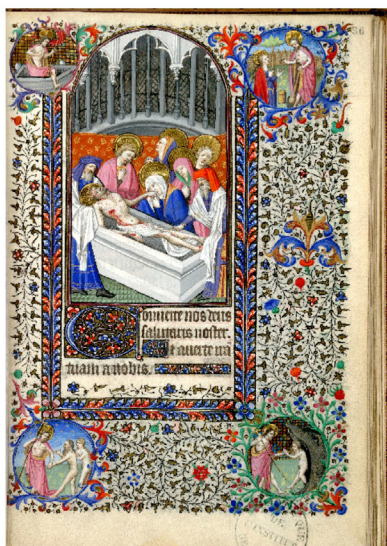 Converte nos deus
salutaris noster
Et averte ira
tuam a nobis.
DE
L'INSTITUT